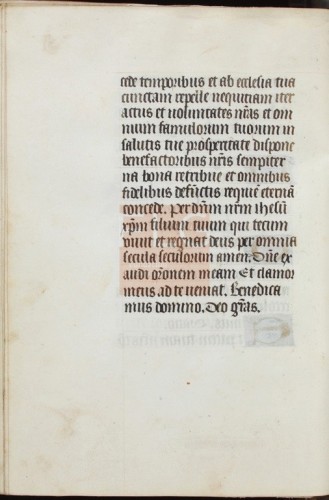 cede temporibus et ab ecclesia tua
cunctam repelle nequitiam iter
actus et uoluntates nr̄as et om
nium famulorum tuorum in
salutis tue prosperitate dispone
benefactoribus nr̄is sempiter
na bona retribue et omnibus
fidelibus defūctis requiē eternā
concede. Per dn̄um nr̄m ihesū
xp̄m filium tuum qui tecum
viuit et regnat deus per omnia
secula seculorum amen. Dn̄e ex
audi or̄onem meam Et clamor
meus ad te veniat. Benedica
mus domino. Deo gr̄as.